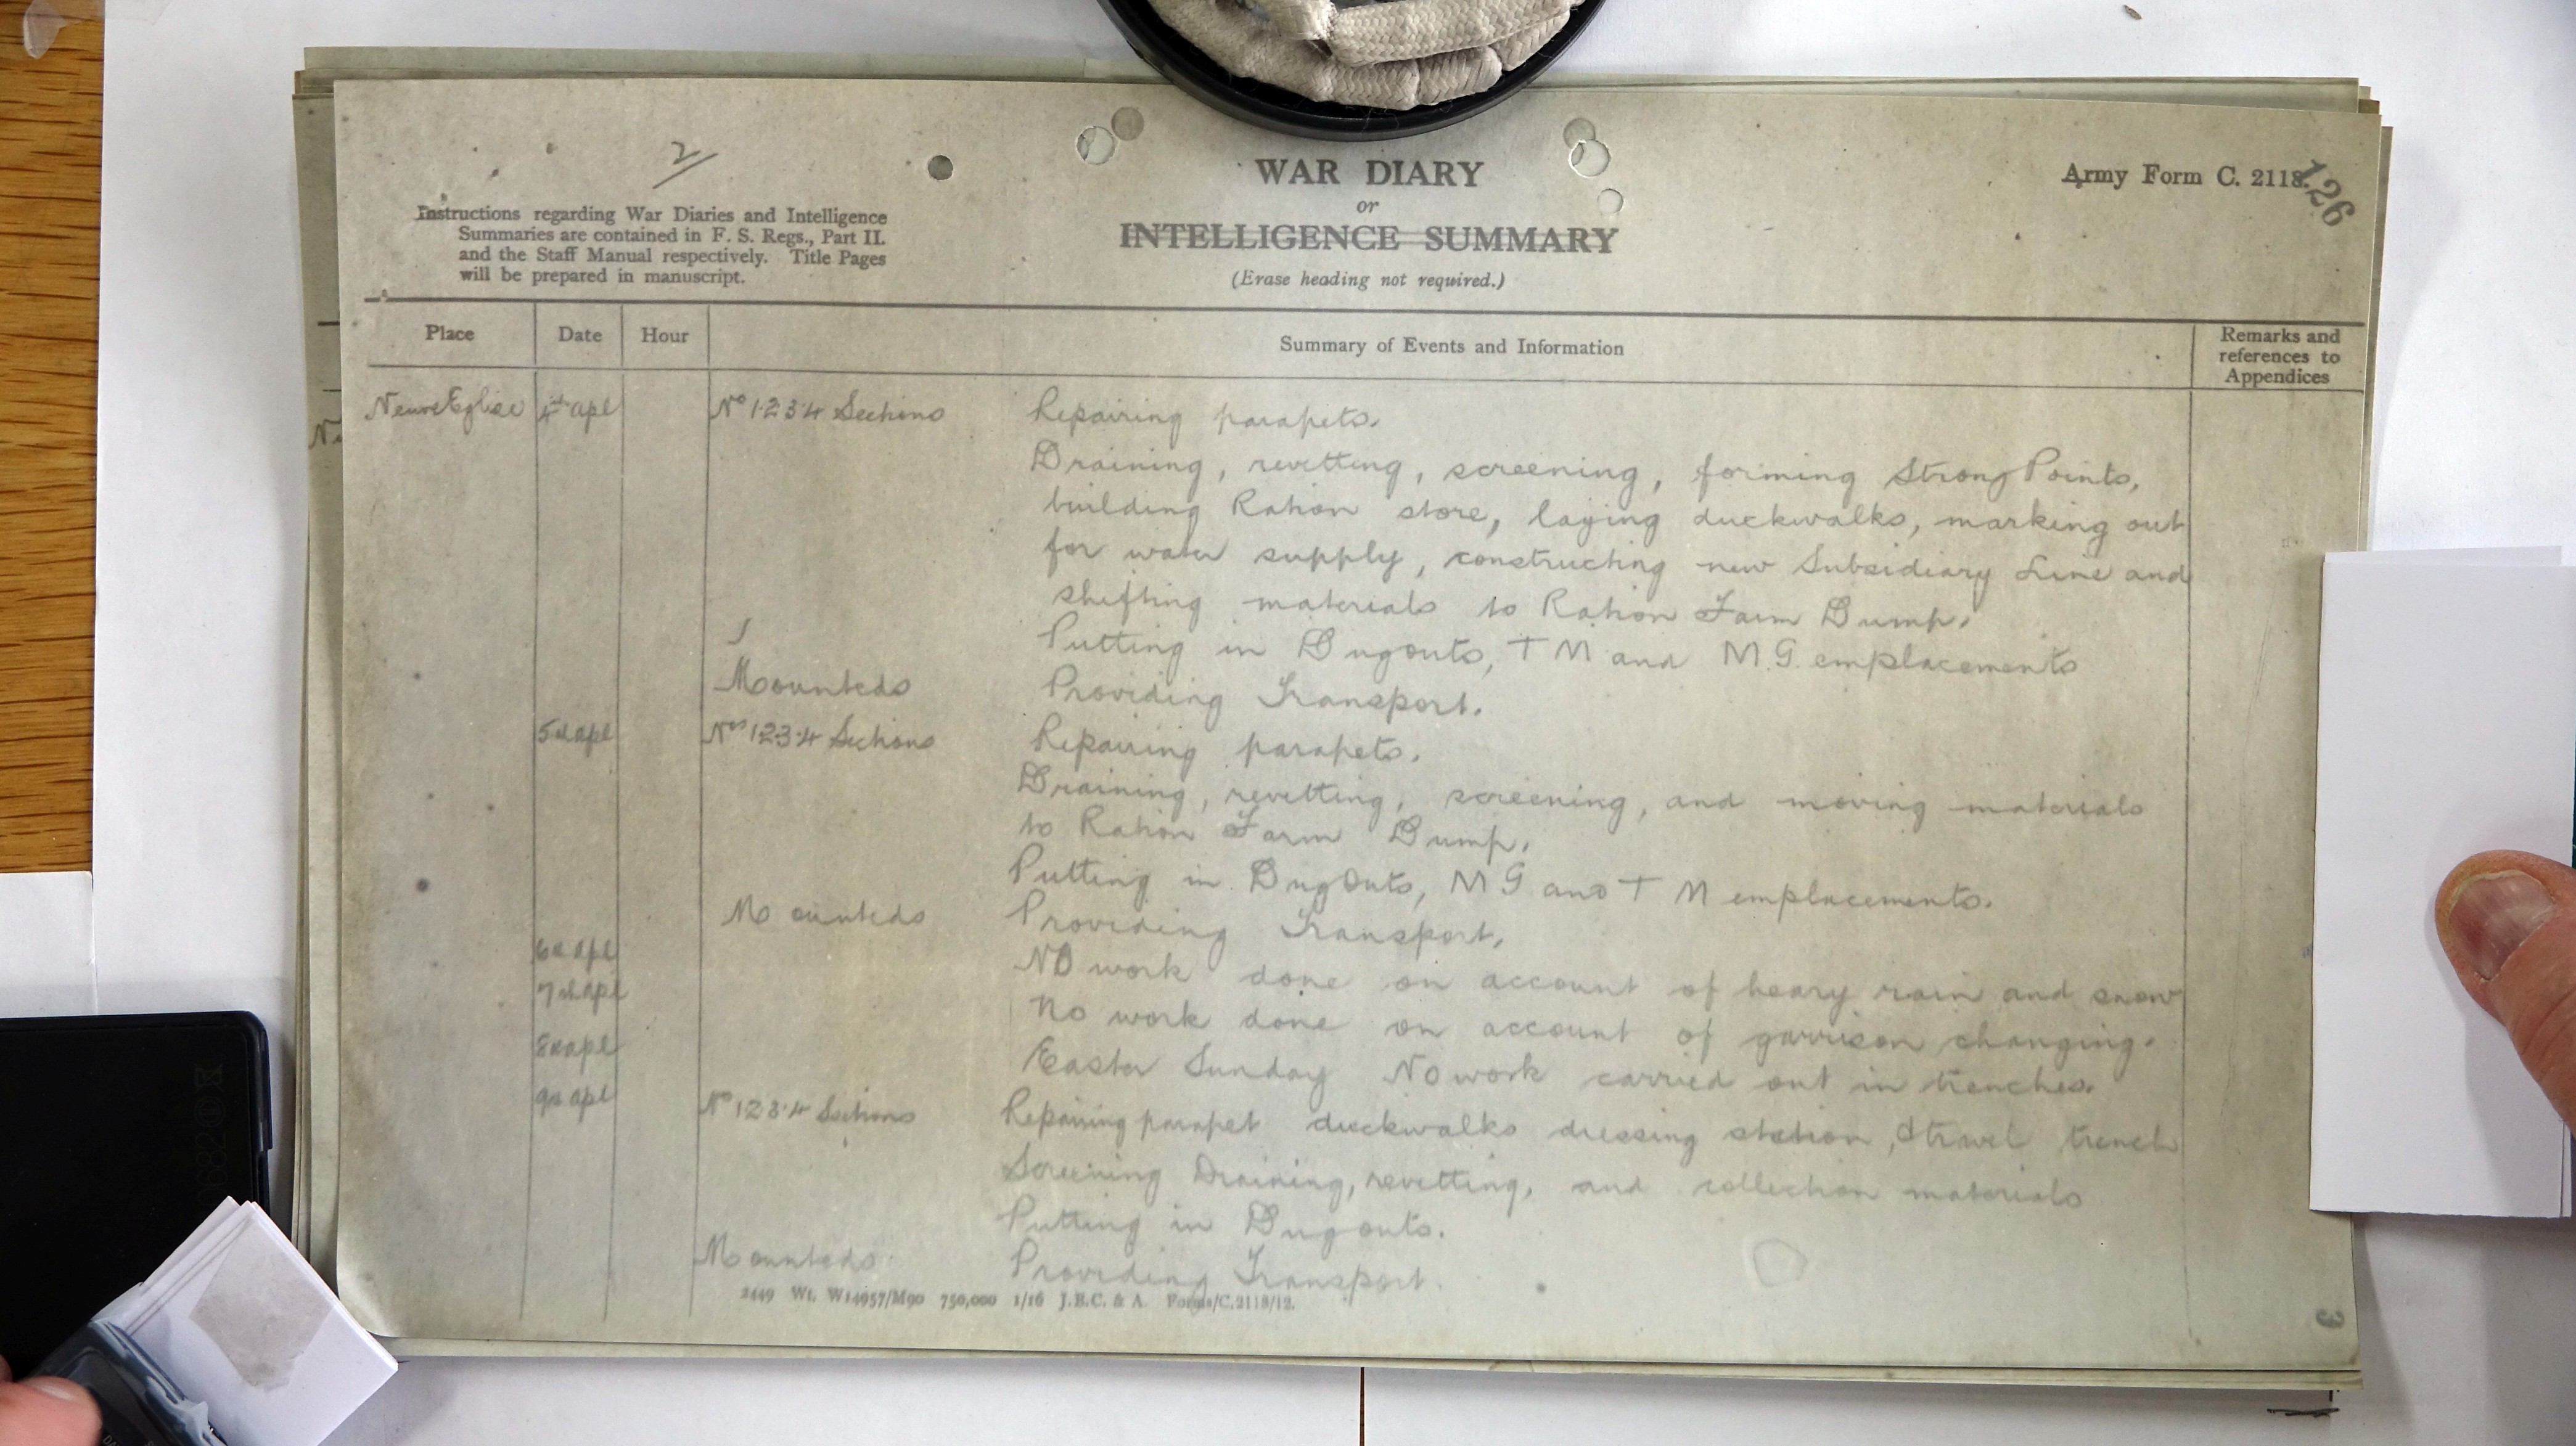 2
WAR DIARY
or
INTELLIGENCE SUMMARY
(Erase heading not required.)
Army Form C. 2118.
126
Instructions regarding War Diaries and Intelligence
Summaries are contained in F. S. Regs., Part II.
and the Staff Manual respectively. Title Pages
will be prepared in manuscript.
Place Date Hour Summary of Events and Information Remarks and references to Appendices
Neuve Eglise 4th apl Nº 1·2·3·4 Sections Repairing parapets.
Draining, revetting, screening, forming Strong Points,
building Ration store, laying duckwalks, marking out
for water supply, constructing new Subsidiary Line and
shifting materials to Ration Farm Dump.
Putting in Dugouts, T M and M.G. emplacements
Mounteds Providing Transport.
5th apl Nos 1·2·3·4 Sections Repairing parapets.
Draining, revetting, screening, and moving materials
to Ration Farm Dump.
Putting in DugOuts, M G and T M emplacements.
Mounteds Providing Transport.
6th apl NO work done on account of heavy rain and snow
7th apl No work done on account of garrison changing.
8th apl Easter Sunday No work carried out in trenches.
9th apl Nº 1·2·3·4 Sections Repairing parapet duckwalks dressing station, trench
Screening Draining, revetting, and collection materials
Putting in Dugouts.
Mounteds Providing Transport.
2449 Wt. W14957/M90 750,000 1/16 J.B.C. & A. Forms/C.2118/12.